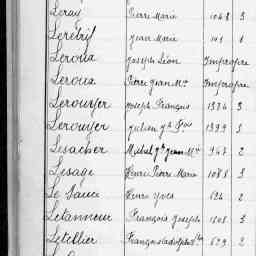 Leray Pierre Marie 1048 3
Lerétrif Jean Marie 101 1
Leroux Joseph Léon Impropre
Leroux Pierre Jean Mie Impropre
Lerouyer Joseph François 1374 3
Lerouyer Julien 1399 3
Lesacher Michel Jean Mie 943 2
Lesage Henri Pierre Marie 1088 3
Le Sauce Henri Yves 624 2
Letanneur François Joseph 1508 3
Letellier François 629 2